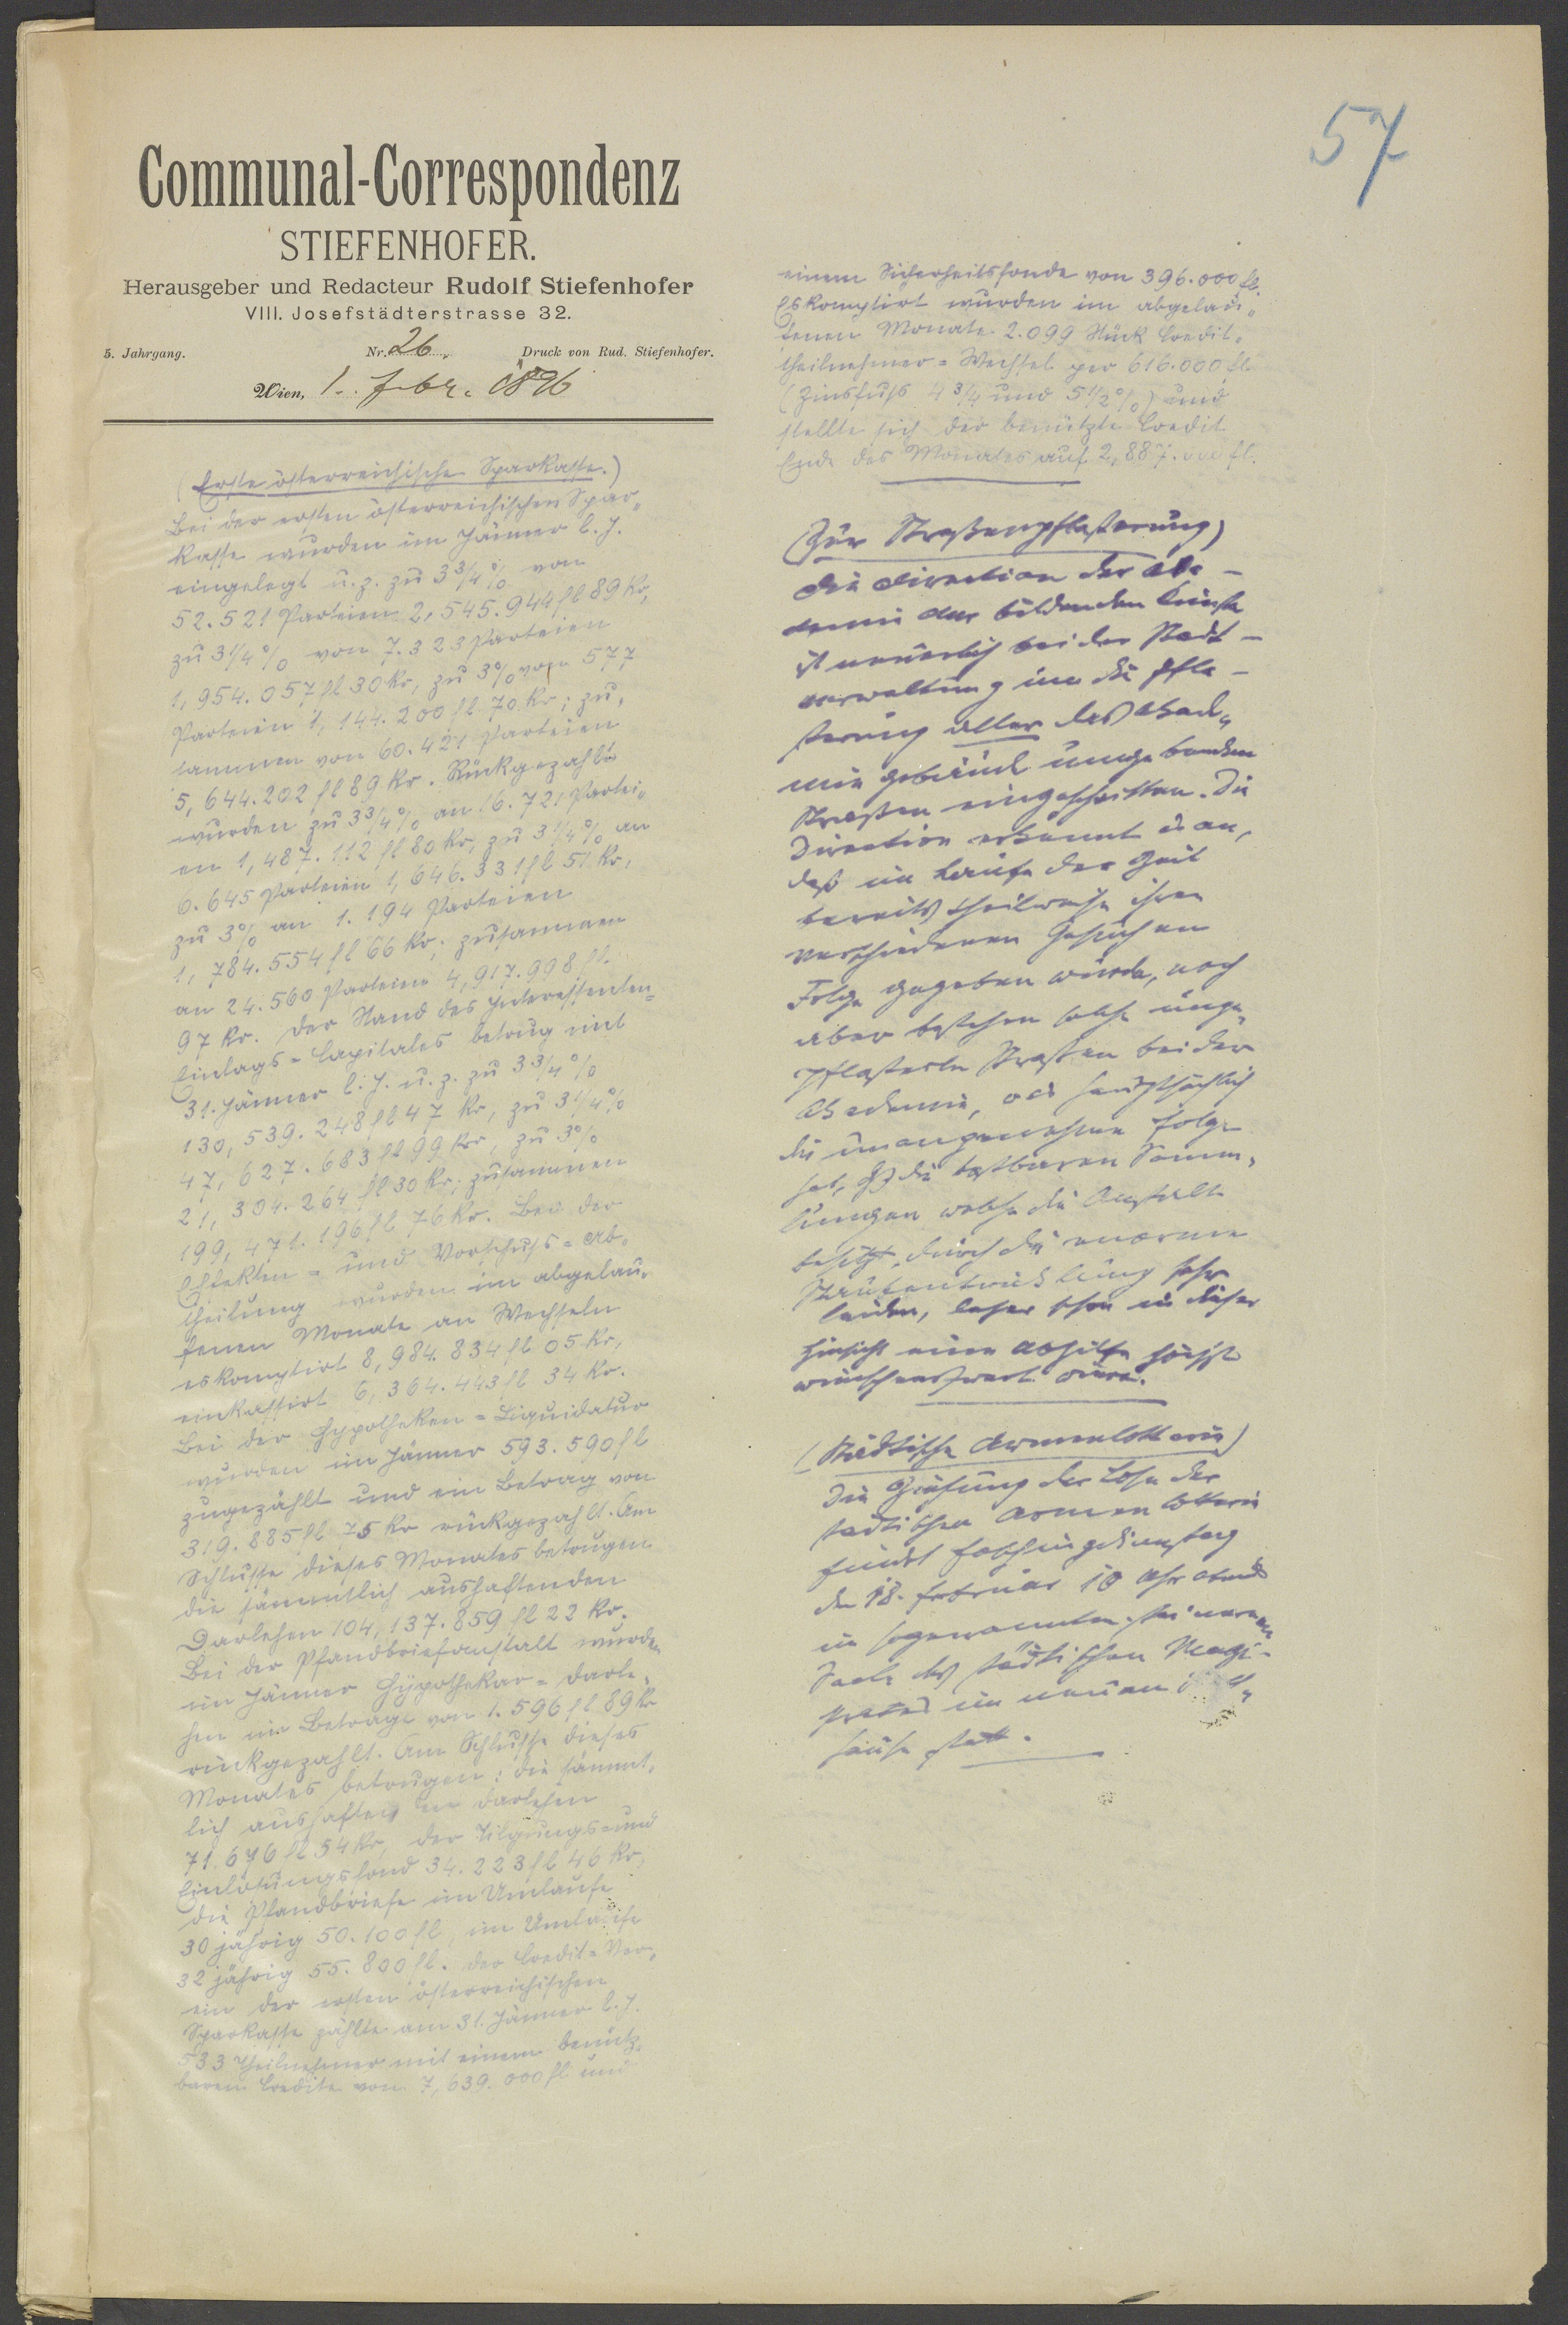 57
Communal-Correspondenz
STIEFENHOFER.
Herausgeber und Redacteur Rudolf Stiefenhofer
VIII. Josefstädterstrasse 32.
5. Jahrgang. Nr. 26 Druck von Rud. Stiefenhofer.
Wien, 1. Febr. 1896
(Erste österreichische Sparkasse.)
Bei der ersten österreichischen Spar„
kasse wurden im Jänner l. J.
eingelegt u. z. zu 3 3/4 % von
52.521 Parteien 2,545.944 fl 89 Kr,
zu 3 1/4 % von 7.323 Parteien
1,954.057 fl 30 Kr, zu 3% von 577
Parteien 1,144.200 fl 70 Kr; zu„
sammen von 60.421 Parteien
5,644.202 fl 89 Kr. Rückgezahlt
wurden zu 3 3/4 % an 16.721 Partei„
en 1,487.112 fl 80 Kr, zu 3 1/4 % an
6.645 Parteien 1,646.331 fl 51 Kr,
zu 3% an 1.194 Parteien
1,784.554 fl 66 Kr; zusammen
an 24.560 Parteien 4,917.998 fl.
97 Kr. Der Stand des Interessenten=
Einlags=Capitales betrug mit
31. Jänner l. J. u. z. zu 3 3/4 %
130,539.248 fl 47 Kr, zu 3 1/4 %
47,627.683 fl 99 Kr, zu 3%
21,304.264 fl 30 Kr; zusammen
199,471.196 fl 76 Kr. Bei der
Effekten= und Vorschuß=Ab„
theilung wurden im abgelau„
fenen Monate an Wechseln
eskomptirt 8,984.834 fl 05 Kr,
einkassirt 6,364.443 fl 34 Kr.
Bei der Hypotheken=Liquidatur
wurden im Jänner 593.590 fl
zugezählt und ein Betrag von
319.885 fl 75 Kr rückgezahlt. Am
Schlusse dieses Monates betrugen
die sämmtlich aushaftenden
Darlehen 104,137.859 fl 22 Kr.
Bei der Pfandbriefanstalt wurden
im Jänner Hypothekar=Darle„
hen im Betrage von 1.596 fl 89 Kr
rückgezahlt. Am Schlusse dieses
Monates betrugen: die sämmt„
lich aushaftenden Darlehen
71.676 fl 54 Kr, der Tilgungs= und
Einlösungsfond 34.223 fl 46 Kr,
die Pfandbriefe im Umlaufe
30 jährig 50.100 fl, im Umlaufe
32 jährig 55.800 fl. Der Credit=Ver„
ein der ersten österreichischen
Sparkasse zählte am 31. Jänner l. J.
533 Theilnehmer mit einem benütz„
baren Credite von 7,639.000 fl und
einem Sicherheitsfonde von 396.000 fl.
Eskomptirt wurden im abgelau„
fenen Monate 2.099 Stück Credit„
theilnehmer=Wechsel per 616.000 fl.
(Zinsfuß 4 3/4 und 5 1/2 %) und
stellte sich der benützte Credit
Ende des Monates auf 2,887.000 fl.
(Zur Straßenpflasterung)
Die Direction der Aka–
demie der bildenden Künste
ist neuerlich bei der Stadt–
verwaltung um die Pfla–
sterung aller das Akade„
mie gebäude umgebenden
Straßen eingeschritten. Die
Direction erkennt es an,
daß im Laufe der Zeit
bereits theilweise ihren
verschiedenen Gesuchen
Folge gegeben wurde, noch
aber bestehen solche unge„
pflasterte Straßen bei der
Akademie, was hauptsächlich
die unangenehme Folge
hat, daß die kostbaren Samm„
lungen welche die Anstalt
besitzt, durch die enorme
Staubentwicklung sehr
leiden, daher schon in dieser
Hinsicht eine Abhilfe höchst
wünschenswert wäre.
(Städtische Armenlotterie)
Die Ziehung der Lose der
städtischen Armenlotterie
findet Faschingdienstag
den 18. Februar 10 Uhr abends
im sogenannten steinernen
Saale des städtischen Magi–
strates im neuen
hause statt.